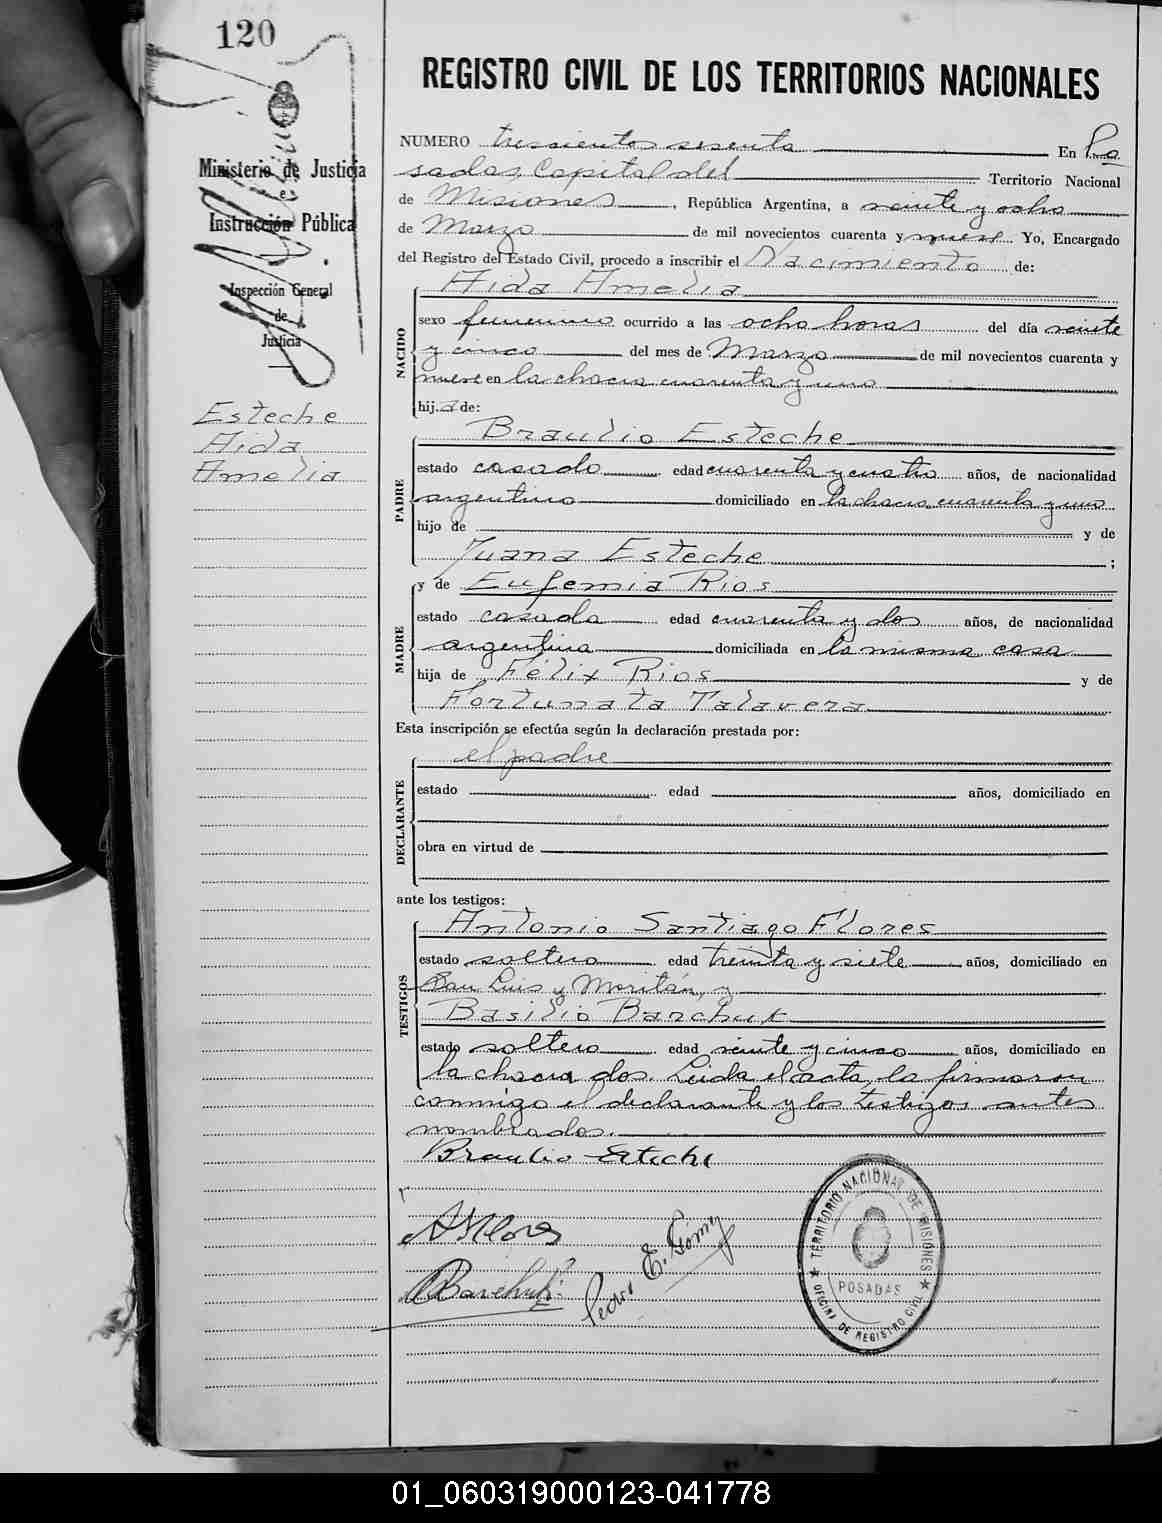 120
REGISTRO CIVIL DE LOS TERRITORIOS NACIONALES
Ministerio de Justicia
e
Instrucción Pública
Inspección General
de
Justicia
Esteche
Aida
Amelia
NUMERO trescientos sesenta En Po
sadas, Capital del Territorio Nacional
de Misiones, República Argentina, a veinte y ocho
de Marzo de mil novecientos cuarenta y nueve. Yo, Encargado
del Registro del Estado Civil, procedo a inscribir el Nacimiento de:
NACIDO
Aida Amelia
sexo femenino ocurrido a las ocho horas del día veinte
y cinco del mes de Marzo de mil novecientos cuarenta y
nueve en la chacra cuarenta y uno
hija de:
PADRE
Braulio Esteche
estado casado edad cuarenta y cuatro años, de nacionalidad
argentino domiciliado en la chacra cuarenta y uno
hijo de y de
Juana Esteche;
MADRE
y de Eufemia Rios
estado casada edad cuarenta y dos años, de nacionalidad
argentina domiciliada en la misma casa
hija de Félix Rios y de
Fortunata Talavera
Esta inscripción se efectúa según la declaración prestada por:
DECLARANTE
el padre
estado edad años, domiciliado en
obra en virtud de
ante los testigos:
TESTIGOS
Antonio Santiago Flores
estado soltero edad treinta y siete años, domiciliado en
San Luis y Moritán, y
Basilio Barchuk
estado soltero edad veinte y cinco años, domiciliado en
la chacra dos. Leida el acta, la firmaron
conmigo el declarante y los testigos antes
nombrados.
Braulio Esteche
ASFlores
Pedro E. Gómez
Barchuk
TERRITORIO NACIONAL DE MISIONES
POSADAS
OFICINA DE REGISTRO CIVIL
01_060319000123-041778